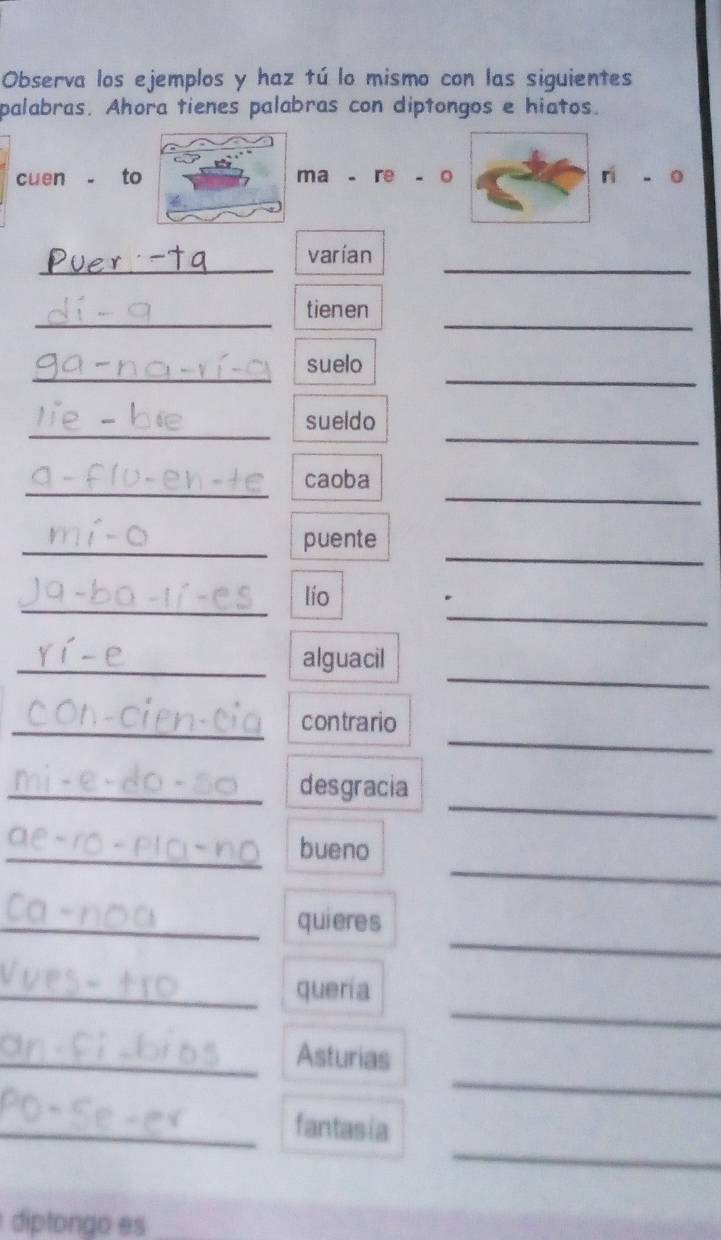 Observa los ejemplos y haz tú lo mismo con las siguientes
palabras. Ahora tienes palabras con diptongos e hiatos.
cuen - to ma - re - o rí - o
Puer - ta varían
dí - a tienen
ga - na - rí - a suelo
lie - bre sueldo
a - flu - en - te caoba
mí - o puente
Ja - ba - lí - es lío
rí - e alguacil
con - cien - cia contrario
mi - e - do - so desgracia
ae - ro - pla - no bueno
ca - noa quieres
Vues - tro quería
an - fi - bios Asturias
Po - se - er fantasía
diptongo es